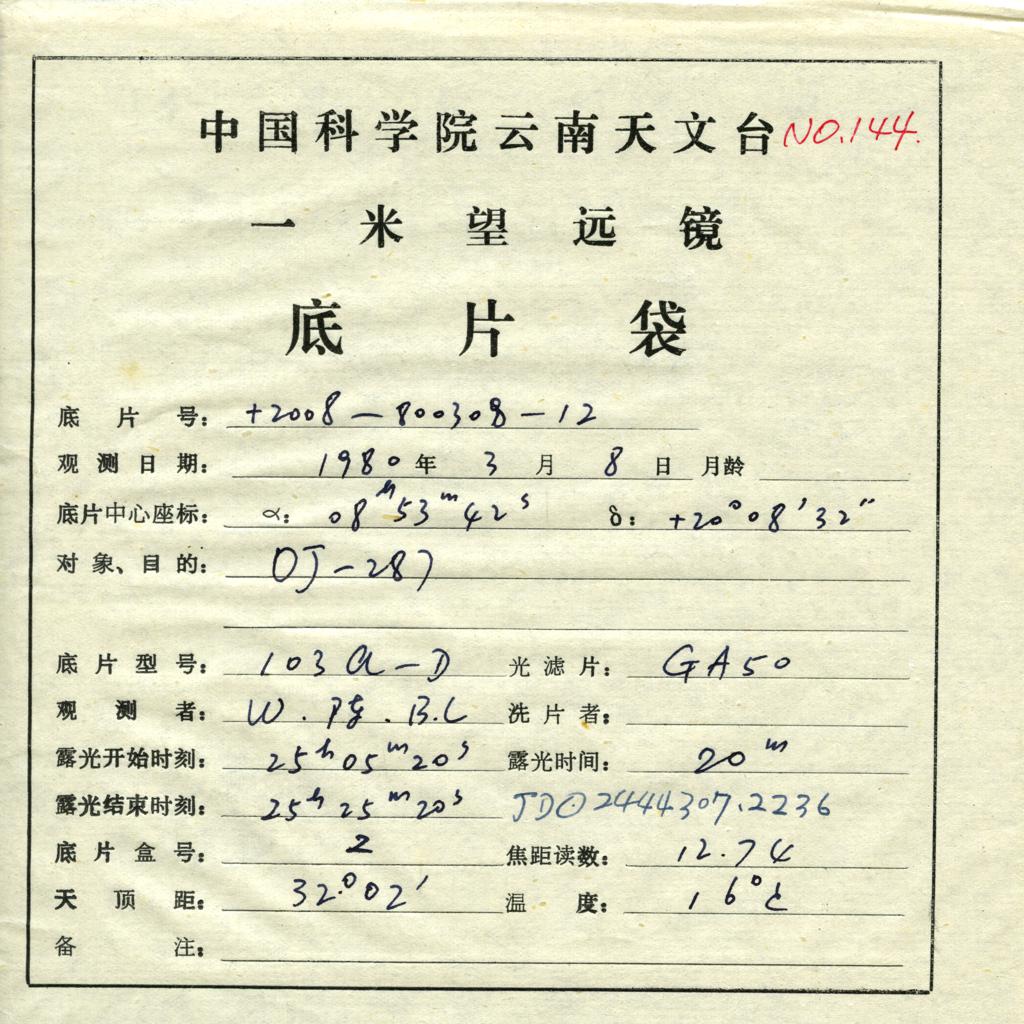 中国科学院云南天文台 NO.144.
一米望远镜
底片袋
底片号: +2008-800308-12
观测日期: 1980年 3月 8日 月龄
底片中心座标: α: 08h53m42s δ: +20°08′32″
对象、目的: OJ-287
底片型号: 103a-D 光滤片: GA50
观测者: W. 陈. B.L 洗片者:
露光开始时刻: 25h05m20s 露光时间: 20m
露光结束时刻: 25h25m20s JD⊙2444307.2236
底片盒号: 2 焦距读数: 12.74
天顶距: 32.°02′ 温度: 16°C
备注: